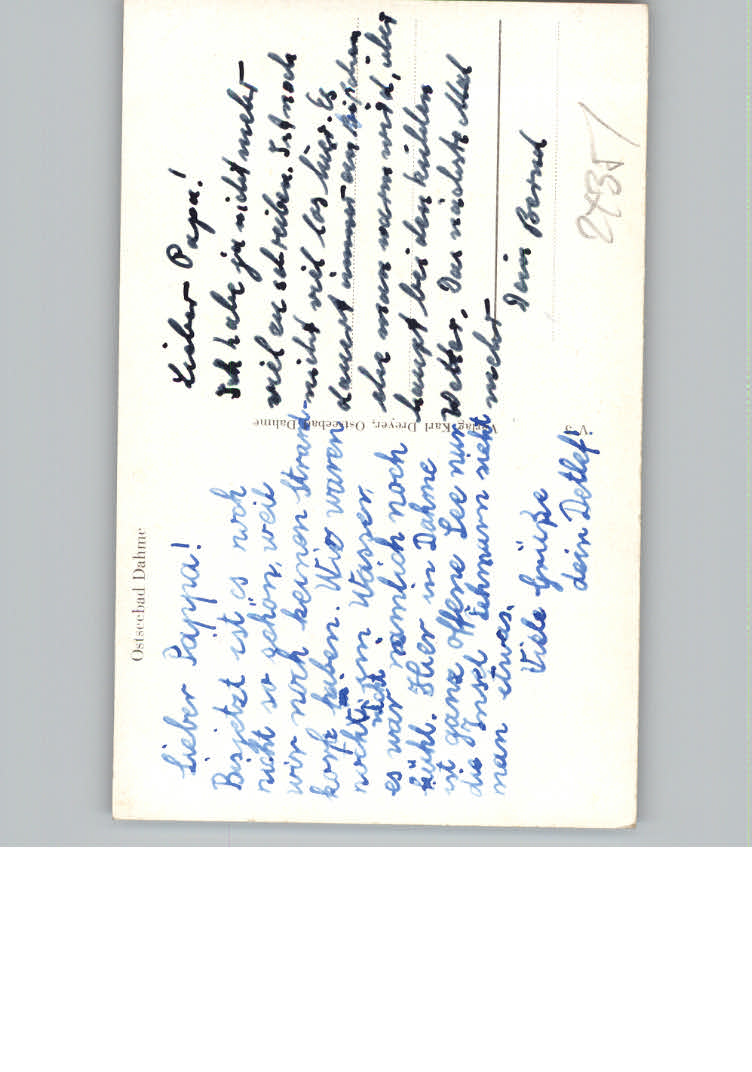 Ostseebad Dahme
Lieber Pappa!
Bis jetzt ist es noch
nicht so schön, weil
wir noch keinen Strand-
korb haben. Wir waren
noch nicht im Wasser,
es war nämlich noch
kühl. Hier in Dahme
ist ganz offene See nur
die Insel Fehmarn sieht
man etwas.
Viele Grüße
dein Detlef!
Verlag Karl Dreyer, Ostseebad Dahme
V 3
Lieber Papa!
Ich habe ja nicht mehr
viel zu schreiben. Ist noch
nicht viel los hier. Es
dauert immer ein bißchen
ehe man warm wird, über
haupt bei den kühlen
Wetter. Das nächste Mal
mehr
Dein Bernd